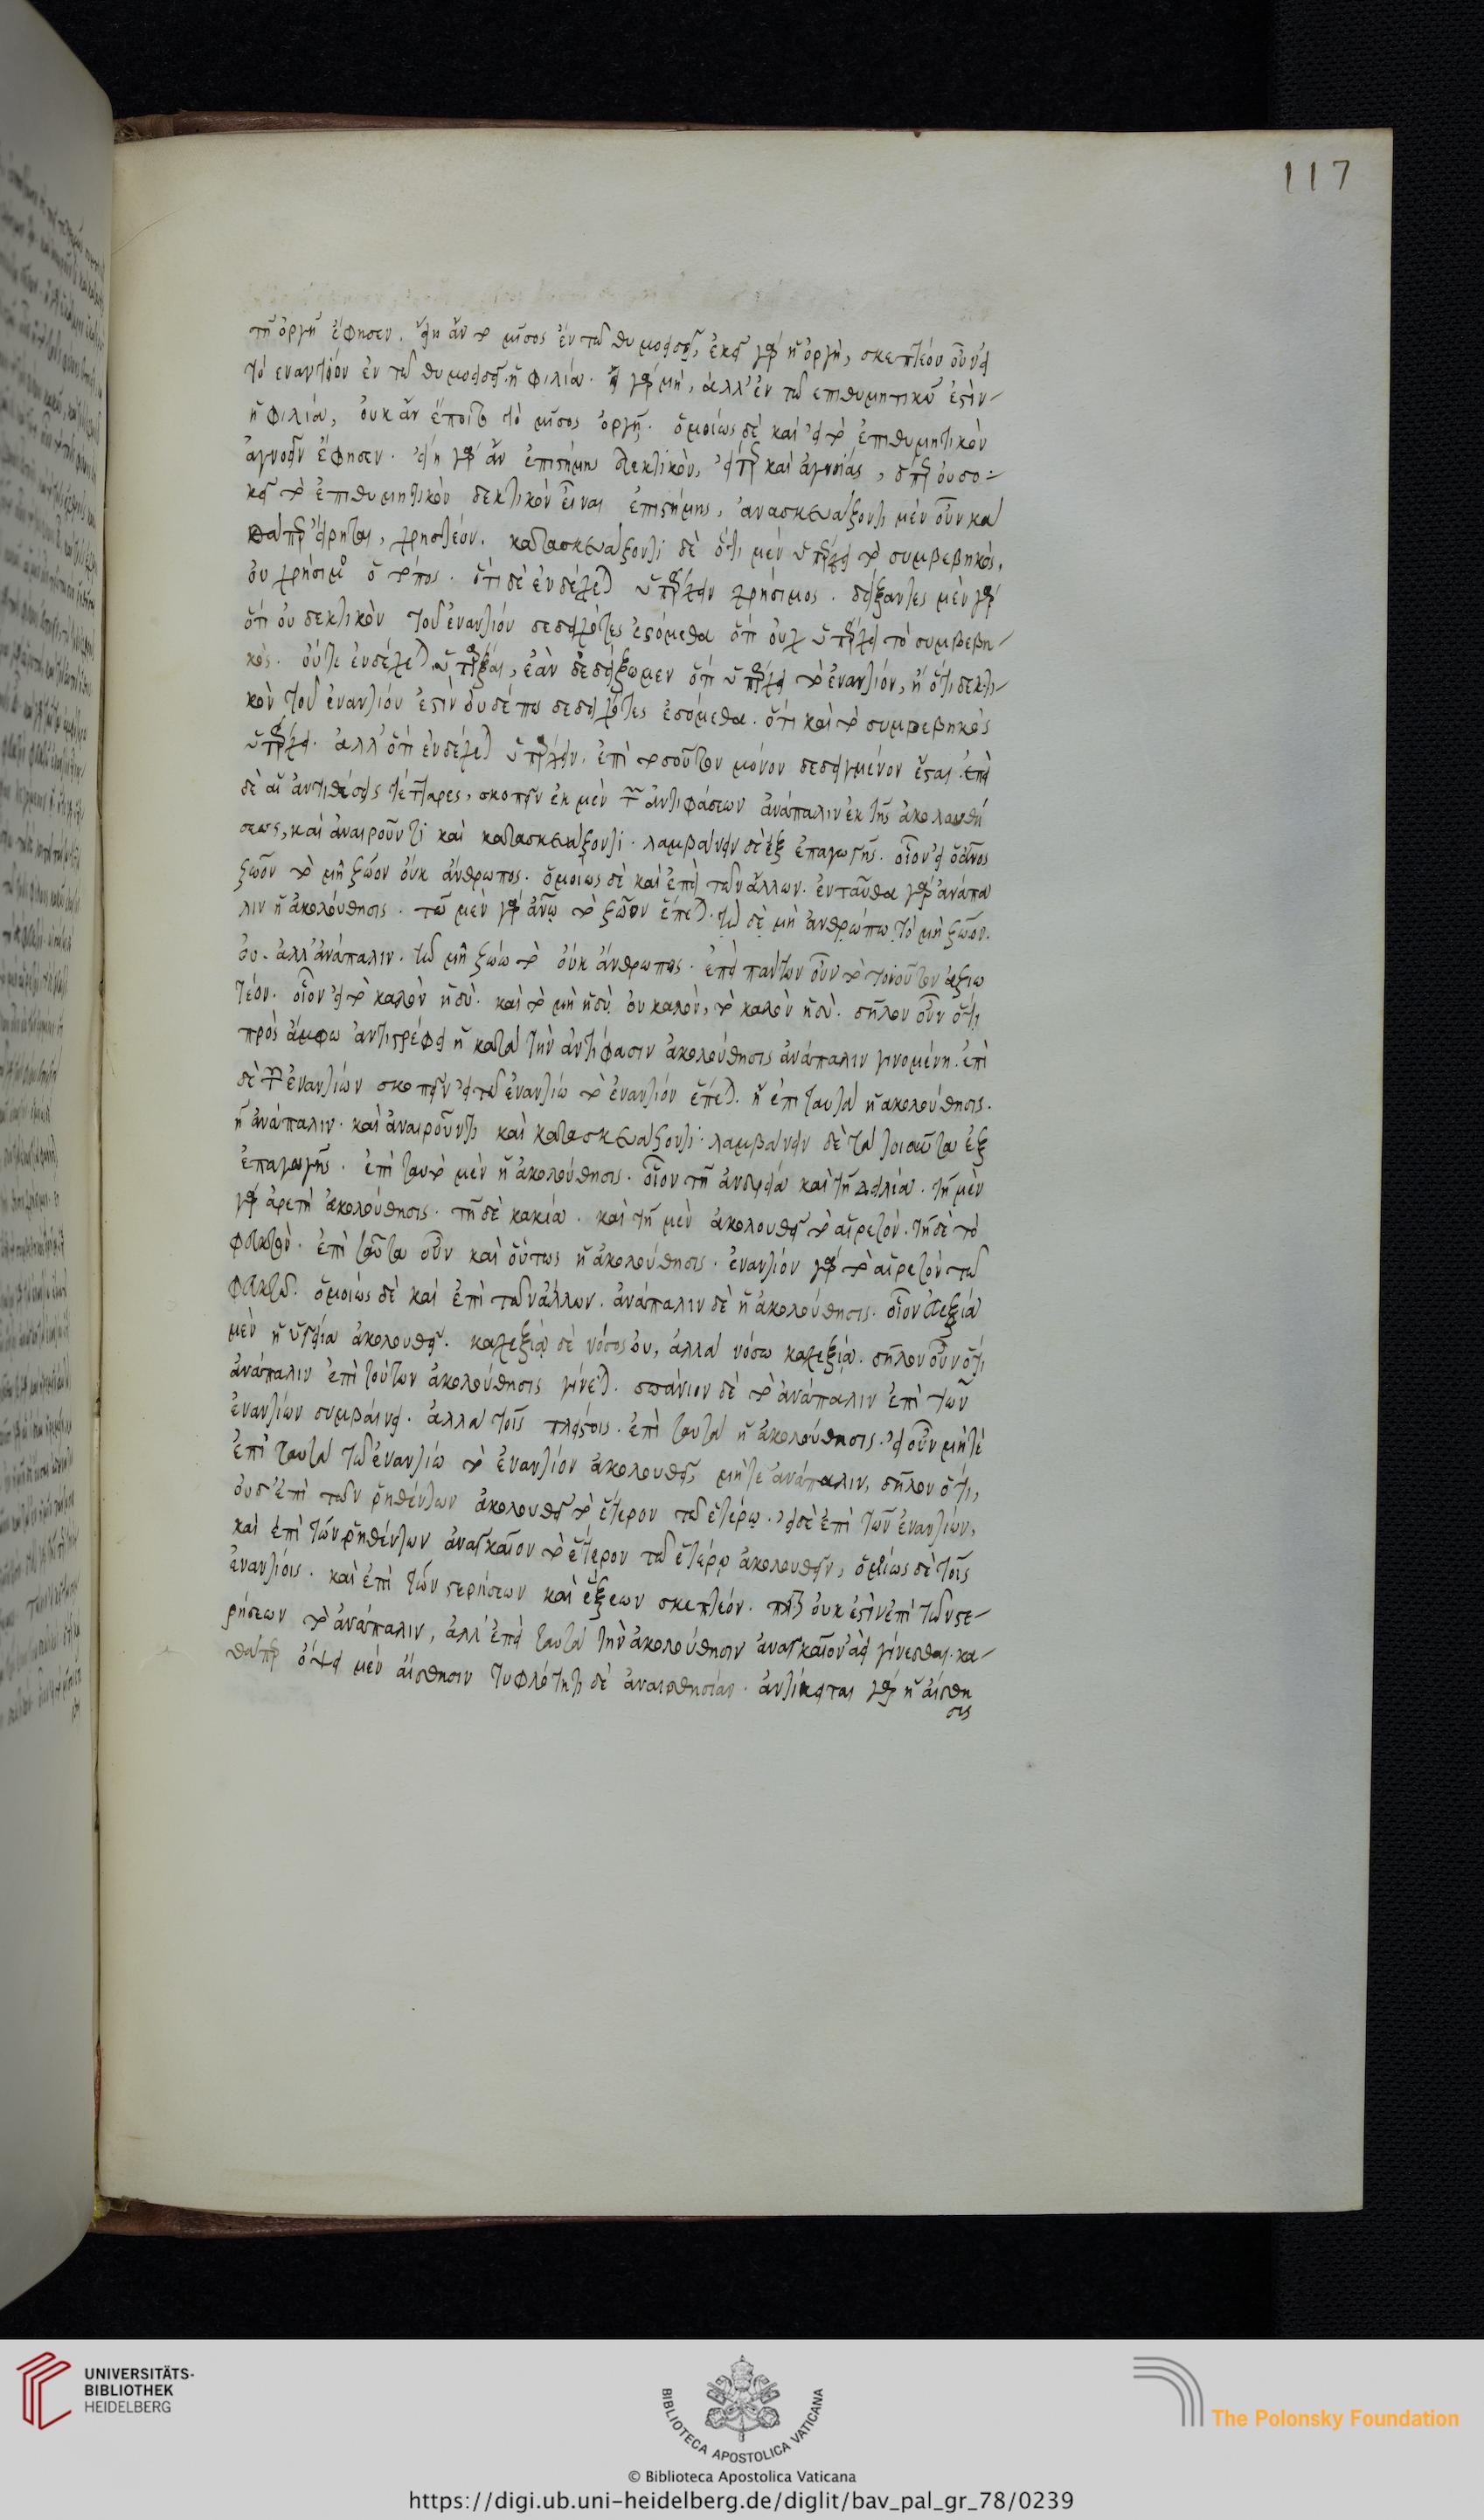 117
τῇ ὀργῇ ἔφησεν. εἴη ἂν τὸ μῖσος ἐν τῷ θυμοειδεῖ, ἐκεῖ γὰρ ἡ ὀργή, σκεπτέον οὖν εἰ
τὸ εναντίον ἐν τῷ θυμοειδεῖ ἡ φιλία. εἰ γὰρ μὴ, ἀλλ' ἐν τῷ επιθυμητικῷ ἐστὶν
ἡ φιλία, οὐκ ἂν ἕποιτο τὸ μῖσος ὀργῇ. ὁμοίως δὲ καὶ εἰ τὸ ἐπιθυμητικὸν
ἀγνοεῖν ἔφησεν. εἴη γὰρ ἂν ἐπιστήμης δεκτικὸν, εἴπερ καὶ ἀγνοίας, ὅπερ οὐ δο-
κεῖ τὸ ἐπιθυμητικὸν δεκτικὸν εἶναι ἐπιστήμης, ἀνασκευάζοντι μὲν οὖν κα
θάπερ εἴρηται, χρηστέον. κατασκευάζοντι δὲ ὅτι μὲν ὑπάρχει τὸ συμβεβηκὸς,
οὐ χρήσιμος ὁ τόπος. ὅτι δὲ ἐνδέχεται ὑπάρχειν χρήσιμος. δείξαντες μὲν γὰρ
ὅτι οὐ δεκτικὸν τοῦ ἐναντίου δεδειχότες ἐσόμεθα ὅτι οὐχ ὑπάρχει τὸ συμβεβη-
κὸς. οὔτε ἐνδέχεται ὑπάρξαι, ἐὰν δὲ δείξωμεν ὅτι ὑπάρχει τὸ ἐναντίον, ἢ ὅτι δεκτι-
κὸν τοῦ ἐναντίου ἐστὶν οὐδέπω δεδειχότες ἐσόμεθα. ὅτι καὶ τὸ συμβεβηκὸς
ὑπάρχει. ἀλλ' ὅτι ἐνδέχεται ὑπάρχειν. ἐπὶ τοσοῦτον μόνον δεδειγμένον ἔσται. ἐπεὶ
δὲ αἱ ἀντιθέσεις τέτταρες, σκοπεῖν ἐκ μὲν τῶν ἀντιφάσεων ἀνάπαλιν ἐκ τῆς ἀκολουθή
σεως, καὶ ἀναιροῦντι καὶ κατασκευάζοντι. λαμβάνειν δὲ ἐξ ἐπαγωγῆς. οἷον εἰ ὁ ἄνθρωπος
ζῷον τὸ μὴ ζῷον οὐκ ἄνθρωπος. ὁμοίως δὲ καὶ ἐπὶ τῶν ἄλλων. ἐνταῦθα γὰρ ἀνάπα
λιν ἡ ἀκολούθησις. τῷ μὲν γὰρ ἀνθρώπῳ τὸ ζῷον ἕπεται. τῷ δὲ μὴ ἀνθρώπῳ τὸ μὴ ζῷον.
οὐ. ἀλλ' ἀνάπαλιν. τῷ μὴ ζώῳ τὸ οὐκ ἄνθρωπος. ἐπὶ πάντων οὖν τὸ τοιοῦτον ἀξιω
τέον. οἷον εἰ τὸ καλὸν ἡδύ. καὶ τὸ μὴ ἡδὺ οὐ καλὸν, τὸ καλὸν ἡδύ. δῆλον οὖν ὅτι
πρὸς ἄμφω ἀντιστρέφει ἡ κατὰ τὴν ἀντίφασιν ἀκολούθησις ἀνάπαλιν γινομένη. ἐπὶ
δὲ τῶν ἐναντίων σκοπεῖν εἰ τῷ ἐναντίῳ τὸ ἐναντίον ἕπεται. ἢ ἐπὶ ταυτὰ ἡ ἀκολούθησις.
ἢ ἀνάπαλιν. καὶ ἀναιροῦντι καὶ κατασκευάζοντι. λαμβάνειν δὲ τὰ τοιαῦτα ἐξ
ἐπαγωγῆς. ἐπὶ ταυτὸ μὲν ἡ ἀκολούθησις. οἷον τῇ ἀνδρείᾳ καὶ τῇ δειλίᾳ. τῇ μὲν
γὰρ ἀρετὴ ἀκολούθησις. τῇ δὲ κακία. καὶ τῇ μὲν ἀκολουθεῖ τὸ αἱρετόν. τῇ δὲ τὸ
φευκτὸν. ἐπὶ ταῦτα οὖν καὶ οὕτως ἡ ἀκολούθησις. ἐναντίον γὰρ τὸ αἱρετὸν τῷ
φευκτῷ. ὁμοίως δὲ καὶ ἐπὶ τῶν ἄλλων. ἀνάπαλιν δὲ ἡ ἀκολούθησις. οἷον εὐεξίᾳ
μὲν ἡ ὑγεία ἀκολουθεῖ. καχεξίᾳ δὲ νόσος οὐ, ἀλλὰ νόσῳ καχεξία. δῆλον οὖν ὅτι
ἀνάπαλιν ἐπὶ τούτων ἀκολούθησις γίνεται. σπάνιον δὲ τὸ ἀνάπαλιν ἐπὶ τῶν
ἐναντίων συμβαίνει. ἀλλὰ τοῖς πλείστοις. ἐπὶ ταυτὰ ἡ ἀκολούθησις. εἰ οὖν μήτε
ἐπὶ ταυτὰ τῷ ἐναντίῳ τὸ ἐναντίον ἀκολουθεῖ, μήτε ἀνάπαλιν, δῆλον ὅτι,
οὐδ' ἐπὶ τῶν ῥηθέντων ἀκολουθεῖ τὸ ἕτερον τῷ ἑτέρῳ. εἰ δὲ ἐπὶ τῶν ἐναντίων,
καὶ ἐπὶ τῶν ῥηθέντων ἀναγκαῖον τὸ ἕτερον τῷ ἑτέρῳ ἀκολουθεῖν, ὁμοίως δὲ τοῖς
ἐναντίοις. καὶ ἐπὶ τῶν στερήσεων καὶ ἕξεων σκεπτέον. πλὴν οὐκ ἐστὶν ἐπὶ τῶν στε-
ρήσεων τὸ ἀνάπαλιν, ἀλλ' ἐπὶ ταυτὰ τὴν ἀκολούθησιν ἀναγκαῖον ἀεὶ γίνεσθαι. κα-
θάπερ ὄψει μὲν αἴσθησιν τυφλότητι δὲ ἀναισθησίαν. ἀντίκειται γὰρ ἡ αἴσθη
σις
UNIVERSITÄTS-
BIBLIOTHEK
HEIDELBERG
BIBLIOTECA APOSTOLICA VATICANA
The Polonsky Foundation
© Biblioteca Apostolica Vaticana
https://digi.ub.uni-heidelberg.de/diglit/bav_pal_gr_78/0239